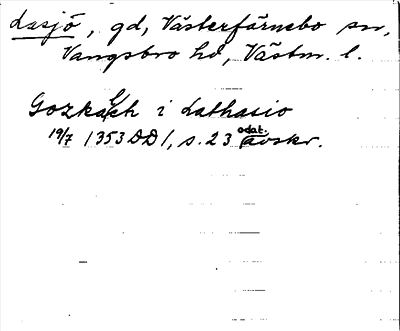 Lasjö, gd, Västerfärnebo sn,
Vangsbro hd, Västm. l.
Gozkalch i Lathasio
19/7 1353 DD1, s. 23 odat. avskr.